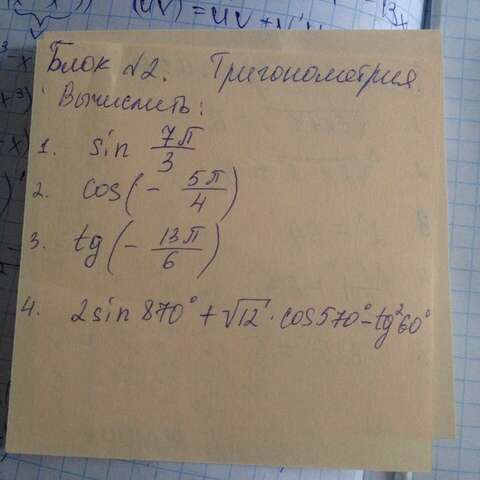 (UV) = UV + U'
13x
Блок №2. Тригонометрия
Вычислить:
1. sin 7π/3
2. cos(- 5π/4)
3. tg(- 13π/6)
4. 2sin 870° + √12 · cos570° - tg²60°